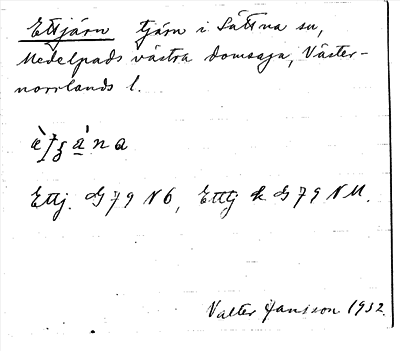 Ettjärn tjärn i Sättna sn,
Medelpads västra domsaga, Väster-
norrlands l.
Ettj. G 79 N 6, Etttj G 79 NM.
Valter Jansson 1932.